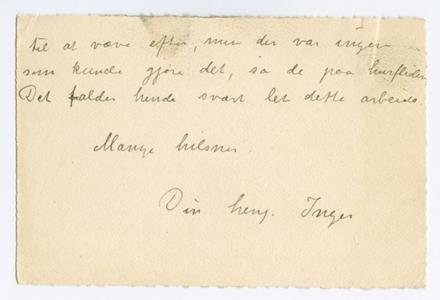 til at væve efter, men der var ingen
som kunde gjøre det, sa de paa husfliden.
Det falder hende svært let dette arbeide.
Mange hilsner.
Din heng. Inger